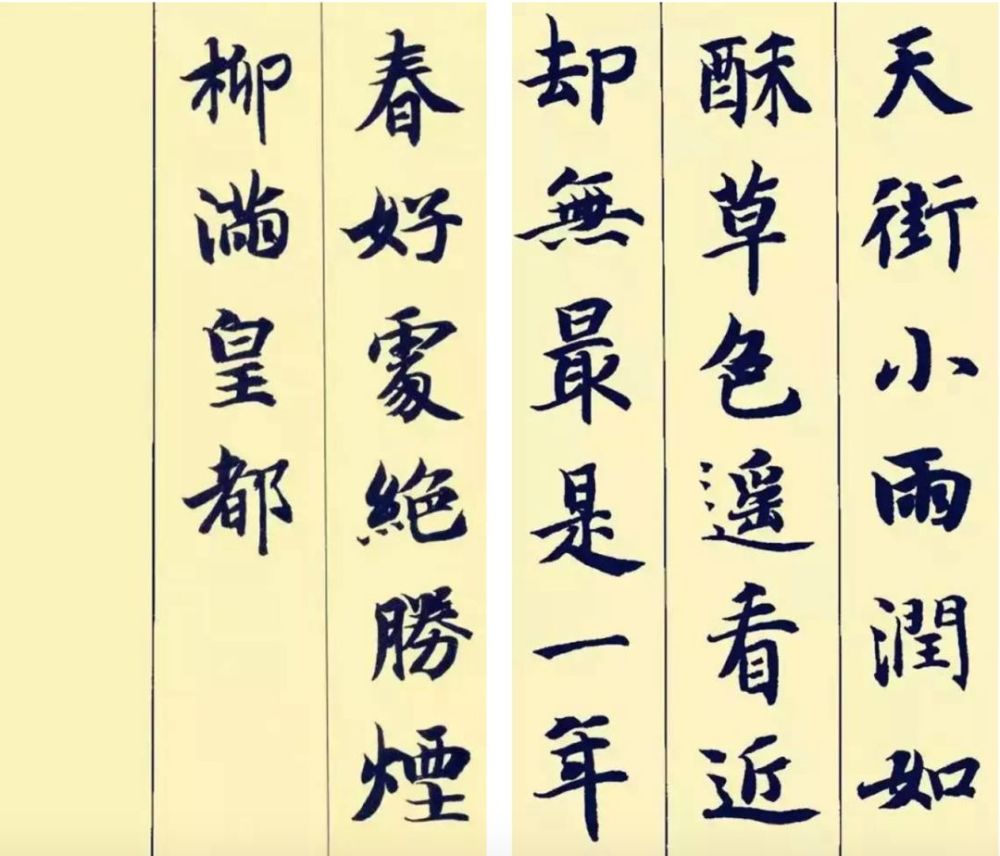 天街小雨潤如
酥草色遥看近
却無最是一年
春好處絶勝煙
柳滿皇都